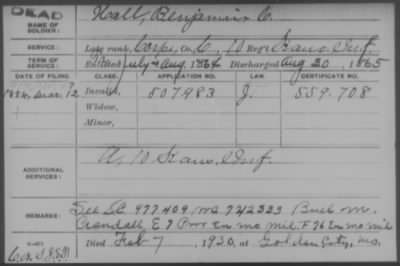 DEAD
NAME OF SOLDIER: Hall, Benjamin C.
SERVICE: Late rank, Corp, Co. C, 10 Reg't Kans. Inf.
TERM OF SERVICE: Enlisted July Aug. 1864 Discharged Aug 20, 1865
DATE OF FILING. CLASS. APPLICATION NO. LAW. CERTIFICATE NO.
1884, Mar. 12 Invalid, 507.983 J. 559.708
Widow,
Minor,
ADDITIONAL SERVICES: A, 10 Kans. Inf.
REMARKS: See SC 977409 WC 772333
Crandall, E 7 Prov En Mo Mil. F 76 En Mo Mil
Died Feb 7, 1920, at Golden City, Mo.